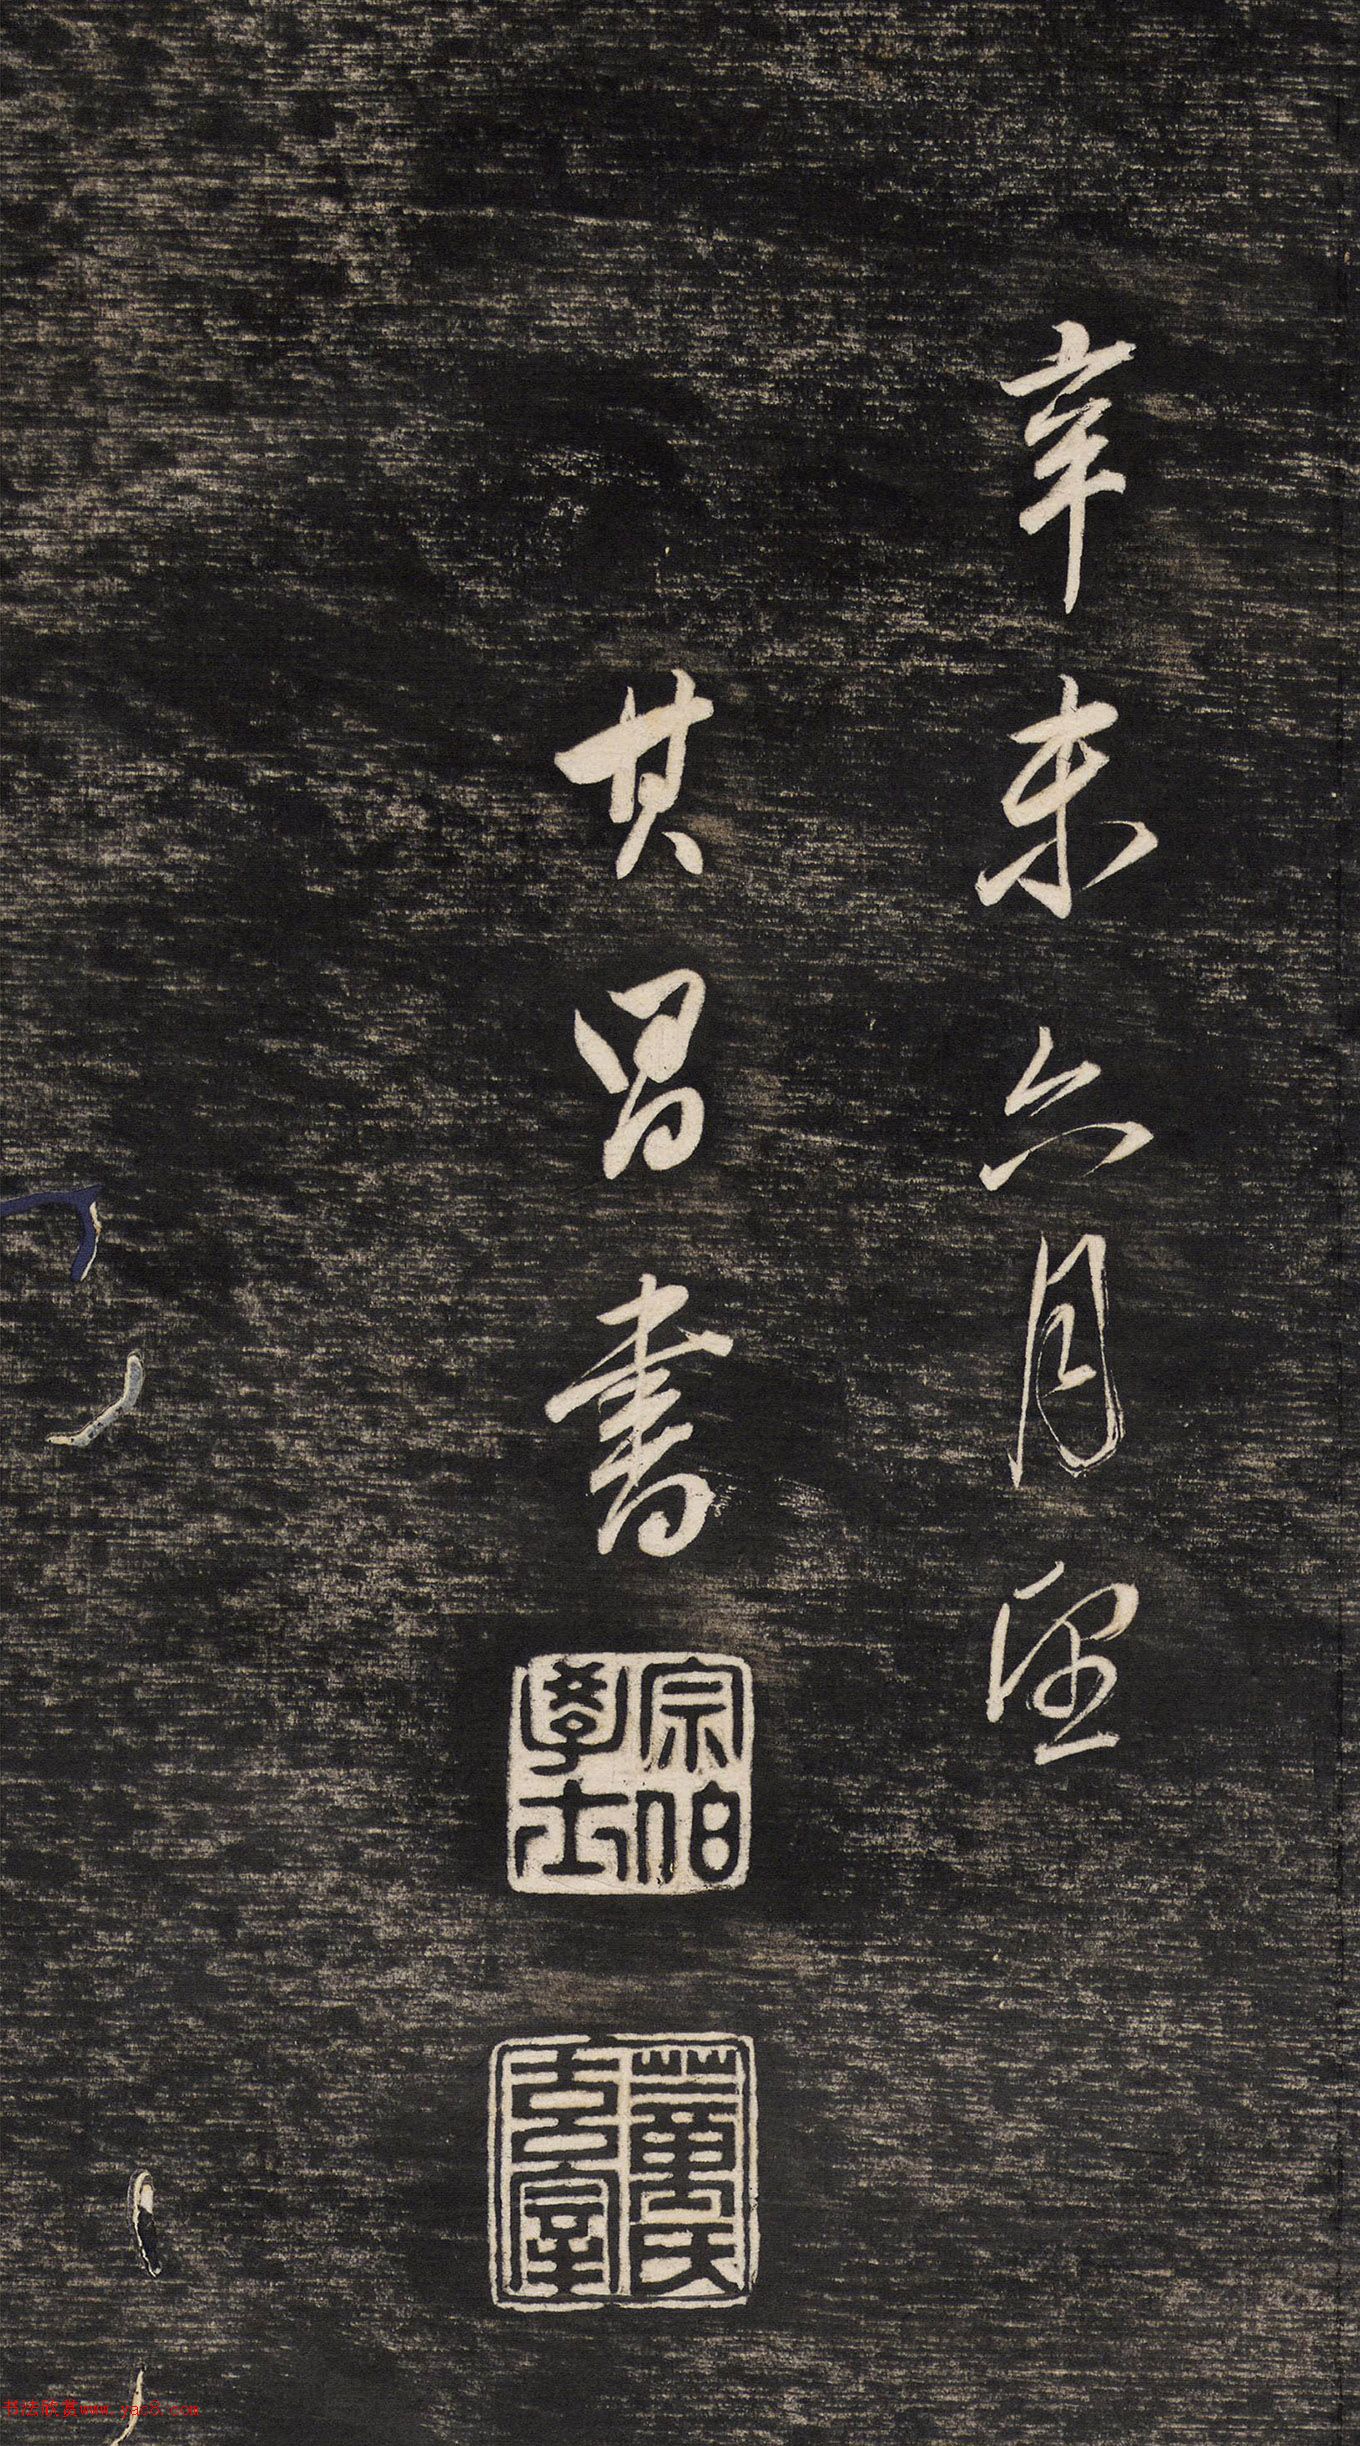 辛未六月望
其昌書
宗伯學士
董氏玄宰
书法欣赏www.yac8.com